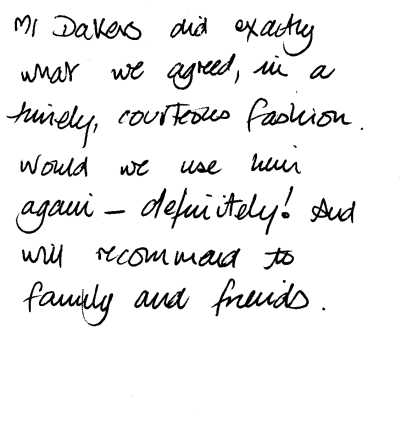 Mr Dakers did exactly
what we agreed, in a
timely, courteous fashion.
Would we use him
again – definitely! And
will recommend to
family and friends.